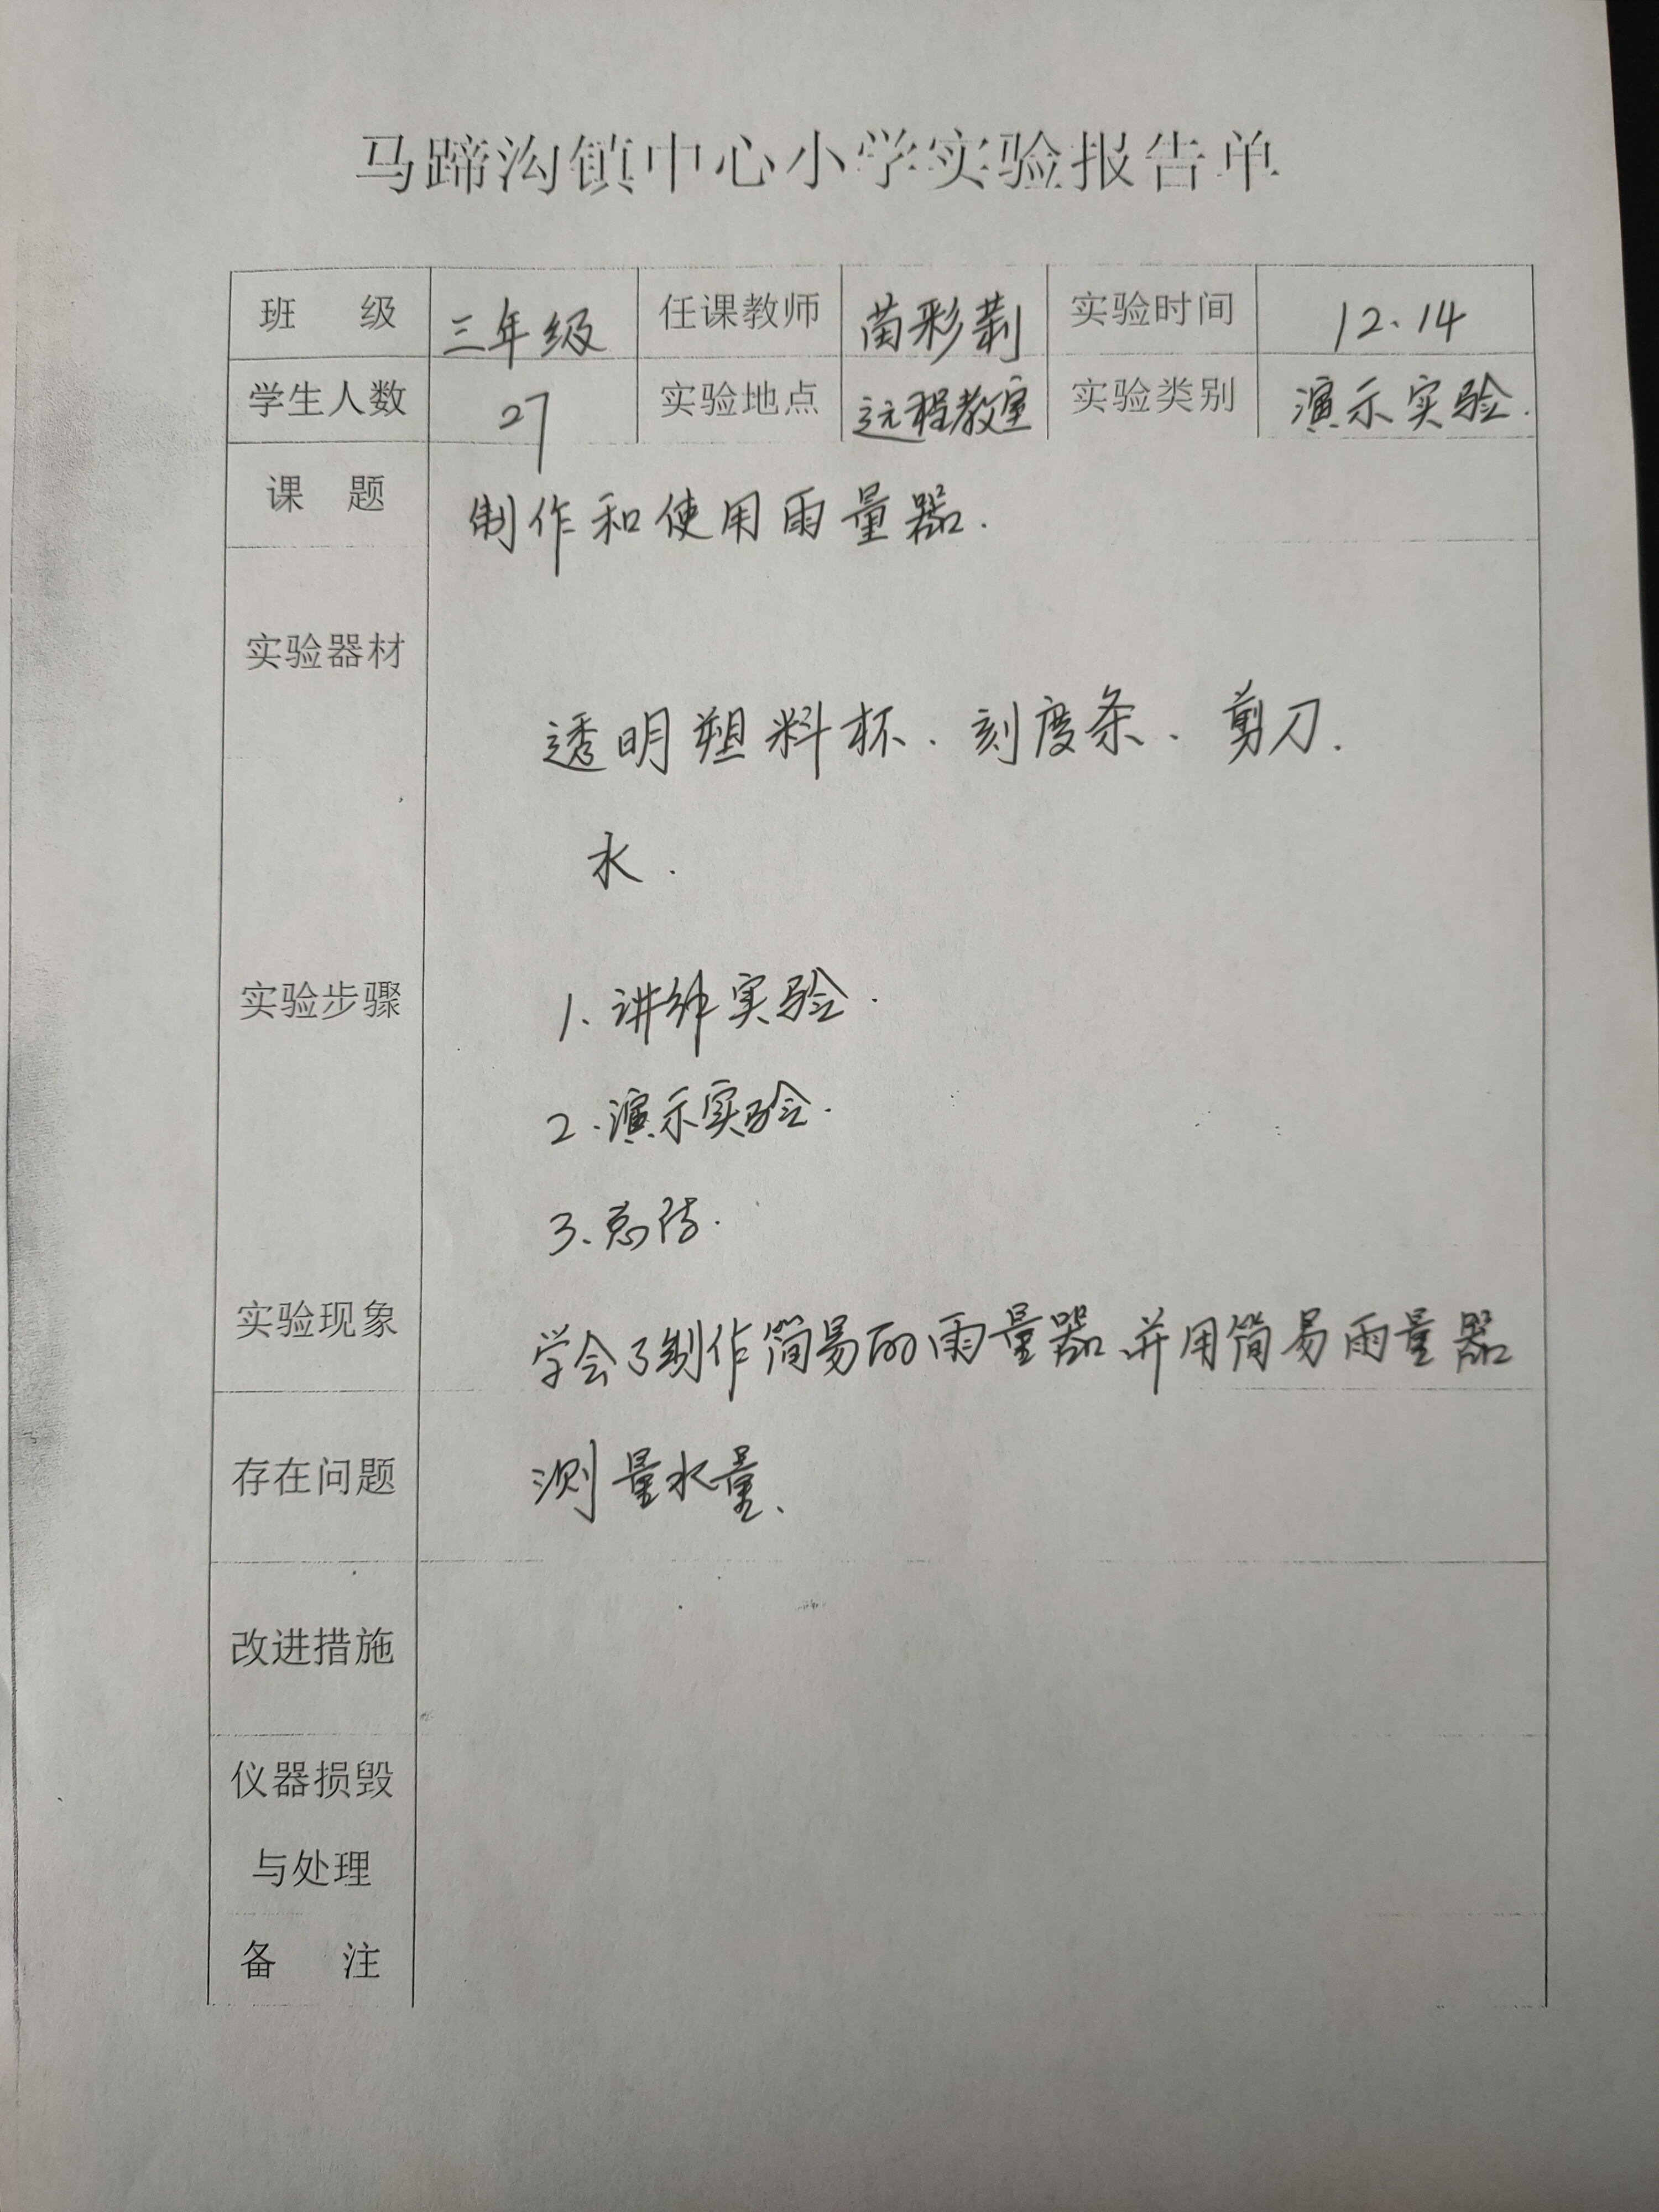 马蹄沟镇中心小学实验报告单
班 级 三年级 任课教师 苗彩莉 实验时间 12.14
学生人数 27 实验地点 远程教室 实验类别 演示实验.
课 题 制作和使用雨量器.
实验器材
透明塑料杯、刻度条、剪刀.
水.
实验步骤 1、讲解实验.
2.演示实验.
3、总结.
实验现象 学会了制作简易的雨量器、并用简易雨量器
存在问题 测量水量、
改进措施
仪器损毁
与处理
备 注